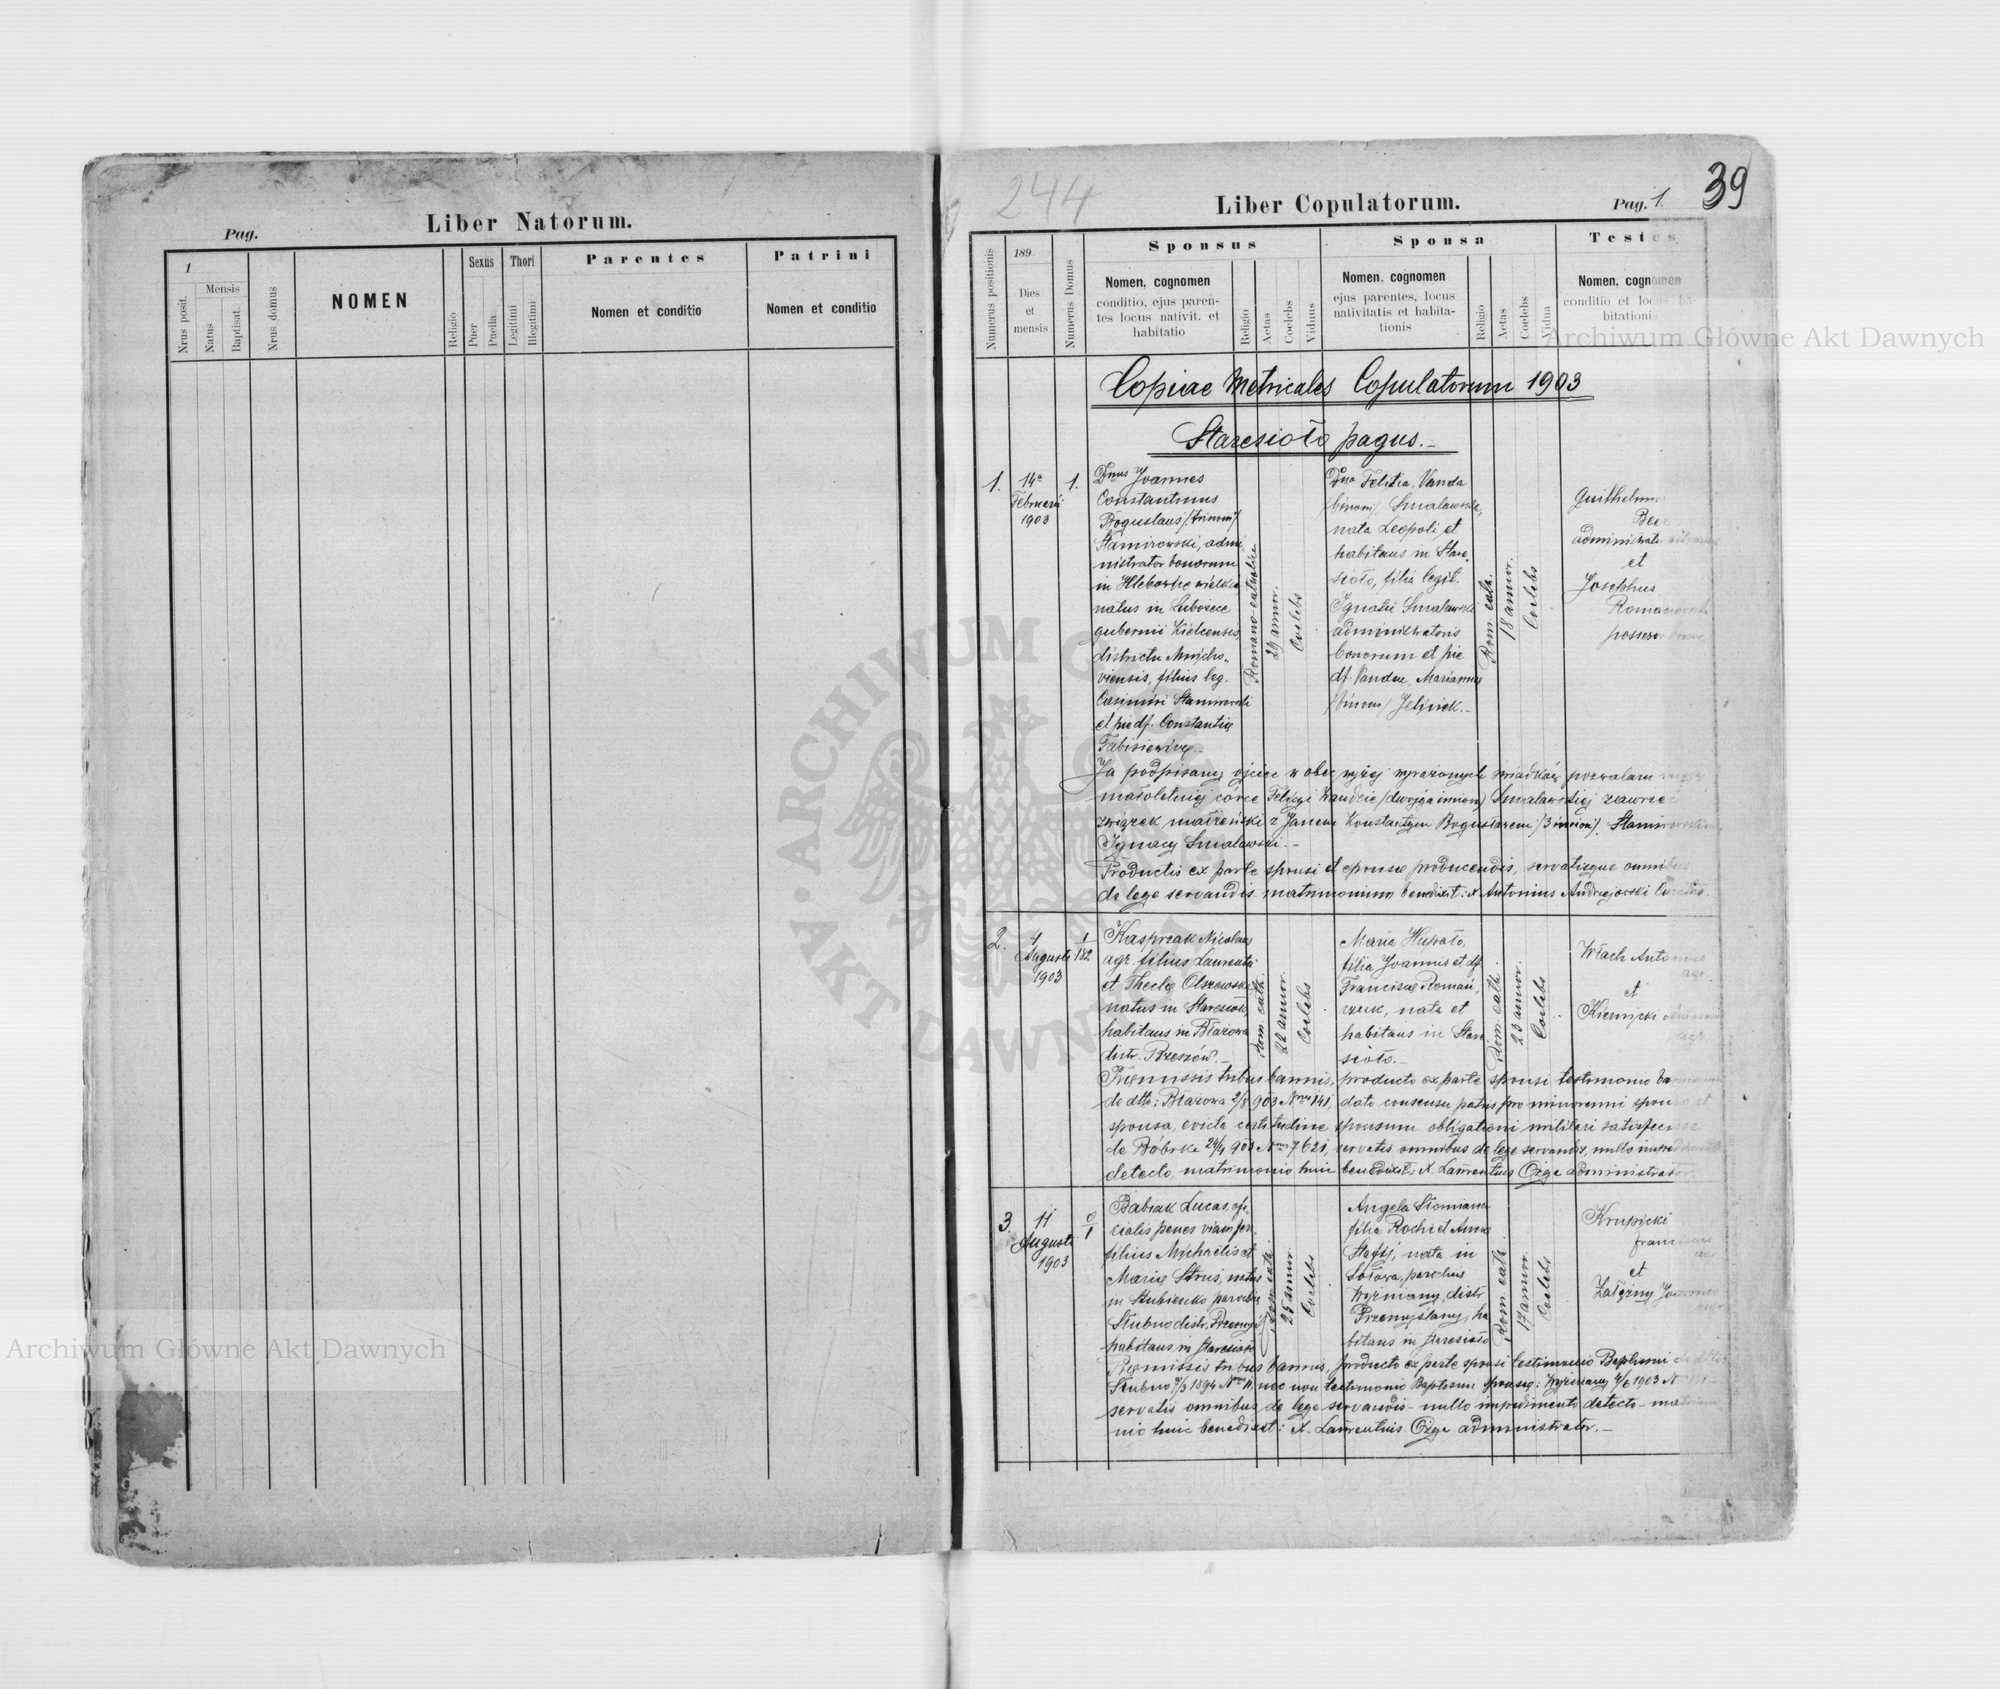 Liber Natorum.
Pag.
1
Mensis
Nrus posit.
Natus
Baptisat.
Nrus domus
NOMEN
Religio
Sexus
Puer
Puella
Thori
Legitimi
Illegitimi
Parentes
Nomen et conditio
Patrini
Nomen et conditio
244
Liber Copulatorum.
Pag. 1.
39
Numerus positionis
189
Dies
et
mensis
Numerus Domus
Sponsus
Nomen, cognomen
conditio, ejus paren-
tes locus nativit. et
habitatio
Religio
Aetas
Coelebs
Viduus
Sponsa
Nomen, cognomen
ejus parentes, locus
nativitatis et habita-
tionis
Religio
Aetas
Coelebs
Vidua
Testes
Nomen, cognomen
conditio et locus ha-
bitationis
Copiae Metricales Copulatorum 1903
Staresioło pagus.
1.
14a
Februarii
1903
1.
Dnus Joannes
Constantinus
Boguslaus /trinom/
Stamirowski, admi-
nistrator bonorum
in Hlebowice wielkie
natus in Luborzece
gubernii Kielcensis,
districtu Miecho-
viensis, filius leg.
Casimiri Stamirowski
et pie df. Constantiæ
Romano-catholicæ
29 annor.
Coelebs
Dna Felitia, Vanda
/binom/ Smalawska,
nata Leopoli et
habitans in Stare-
sioło, filia legit.
Ignatii Smalawski
administratoris
bonorum et pie
df. Vandae, Mariannae
/binom/ Jelinek.
Rom. cath.
18 annor.
Coelebs
administrator
et
Josephus
Ja podpisany ojciec w obec wyżej wyrażonych świadków pozwalam
małoletniej córce Felicyi Wandzie /dwojga imion/ Smalawskiej zawrzeć
związek małżeński z Janem Konstantym Bogusławem /3 imion/ Stamirowskim
Ignacy Smalawski.
Productis ex parte sponsi et sponsæ producendis, servatisque omnibus
de lege servandis matrimonium benedixit: X Antonius Andrzejowski Curatus.
2.
4
Augusti
1903
1/182
Kasprzak Nicolaus
agr. filius Laurentii
et Theclæ Olszewska
natus in Staresioło,
habitans in Błażowa
distr. Rzeszów.
Rom cath.
22 annor.
Coelebs
Maria Hupało,
filia Joannis et df.
Franciscæ Romań-
czuk, nata et
habitans in Stare-
sioło.
Rom. cath.
23 annor.
Coelebs
Włach Antonius
agr.
et
Kiernicki
agr
Præmissis tribus bannis, producto ex parte sponsi testimonio
de dtto: Błażowa 2/8 903 Nro 141, dato consensu patris pro minorenni sponso et
sponsa, evicta certitudine sponsum obligationi militari satisfecisse
de Bóbrka 903 Nro 7621, servatis omnibus de lege servandis, nullo impedimento
detecto, matrimonio huic benedixit: X. Laurentius Ożga administrator
3.
11
Augusti
1903
0/1
Babiak Lucas, offi-
cialis penes viam fer.
filius Michaelis et
Mariæ Struś, natus
in Stubienko parochiæ
Stubno distr. Przemyśl
habitans in Staresioło
Rom. cath.
25 annor.
Coelebs
Angela Słomiana
filia Rochi et Annæ
nata in
Sołowa, parochiæ
Wyżniany, distr.
Przemyślany, ha-
bitans in Staresioło
Rom. cath.
17 annor.
Coelebs
Krupicki
Franciscus
agr
et
Załężny Joannes
Præmissis tribus bannis, producto ex parte sponsi testimonio Baptismi de dtto:
Stubno 1894 Nro 11, nec non testimonio Baptismi sponsæ: Wyżniany 4/6 1903
servatis omnibus de lege servandis - nullo impedimento detecto - matrimo-
nio huic benedixit: X. Laurentius Ożga administrator.
ARCHIWUM GŁÓWNE AKT DAWNYCH
Archiwum Główne Akt Dawnych
Archiwum Główne Akt Dawnych